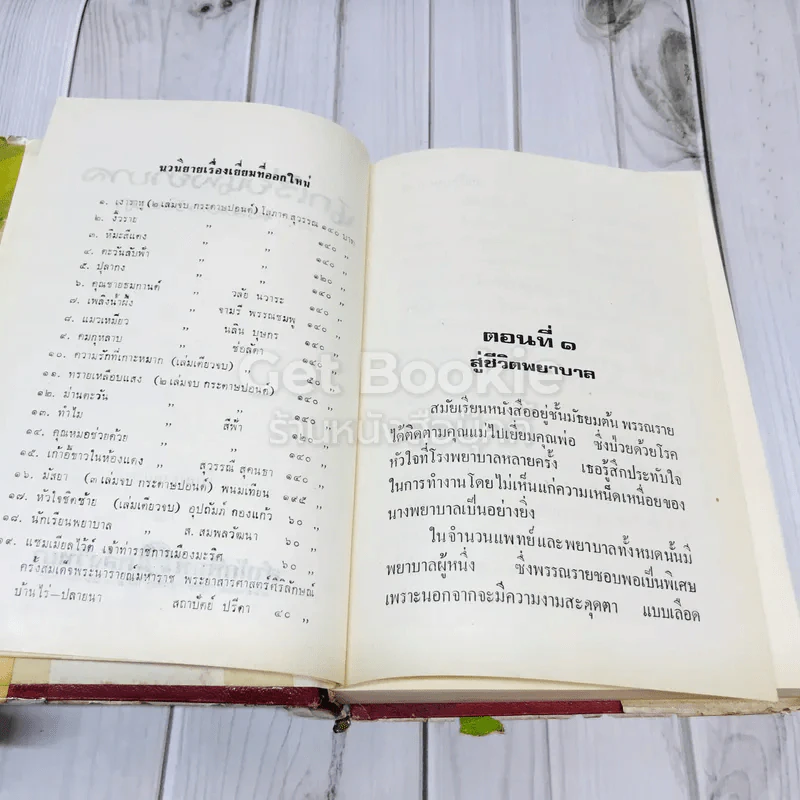 นวนิยายเรื่องเยี่ยมที่ออกใหม่
๑. เงาราหู (๒ เล่มจบ กระดาษปอนด์) โสภาค สุวรรณ ๑๔๐ บาท
๒. งิ้วราย " " ๑๔๐ "
๓. หิมะสีแดง " " ๑๔๐ "
๔. ตะวันลับฟ้า " " ๑๒๐ "
๕. ปุลากง " " ๑๔๐ "
๖. คุณชายธมกานต์ " วลัย นวาระ ๑๔๐ "
๗. เพลิงน้ำผึ้ง " จามรี พรรณชมพู ๑๔๐ "
๘. แมวเหมียว " นลิน บุษกร ๑๔๐ "
๙. คมกุหลาบ " ช่อลัดา ๑๔๐ "
๑๐. ความรักที่เกาะหมาก (เล่มเดียวจบ) "
๑๑. ทรายเหลือบแสง (๒ เล่มจบ กระดาษปอนด์) "
๑๒. ม่านตะวัน " "
๑๓. ทำไม " สีฟ้า
๑๔. คุณหมอช่วยด้วย " "
๑๕. เก้าอี้ขาวในห้องแดง " สุวรรณี สุคนธา "
๑๖. มัสยา (๓ เล่มจบ กระดาษปอนด์) พนมเทียน ๑๙๕ "
๑๗. หัวใจชิดซ้าย (เล่มเดียวจบ) อุปถัมภ์ กองแก้ว ๖๐ "
๑๘. นักเรียนพยาบาล " ส. สมพลวัฒนา ๖๐ "
๑๙. แซมเมียลไว้ต์ เจ้าท่าราชการเมืองมะริด
ครั้งสมเด็จพระนารายณ์มหาราช พระยาสารศาสตร์ศิริลักษณ์ ๖๐ "
บ้านไร่—ปลายนา สถาปัตย์ ปรีดา ๔๐ "
ตอนที่ ๑
สู่ชีวิตพยาบาล
สมัยเรียนหนังสืออยู่ชั้นมัธยมต้น พรรณราย
ได้ติดตามคุณแม่ไปเยี่ยมคุณพ่อ ซึ่งป่วยด้วยโรค
หัวใจที่โรงพยาบาลหลายครั้ง เธอรู้สึกประทับใจ
ในการทำงานโดยไม่เห็นแก่ความเหน็ดเหนื่อยของ
นางพยาบาลเป็นอย่างยิ่ง
ในจำนวนแพทย์และพยาบาลทั้งหมดนั้นมี
พยาบาลผู้หนึ่ง ซึ่งพรรณรายชอบพอเป็นพิเศษ
เพราะนอกจากจะมีความงามสะดุดตา แบบเลือด
Get Bookie
ร้านหนังสือเก็ต